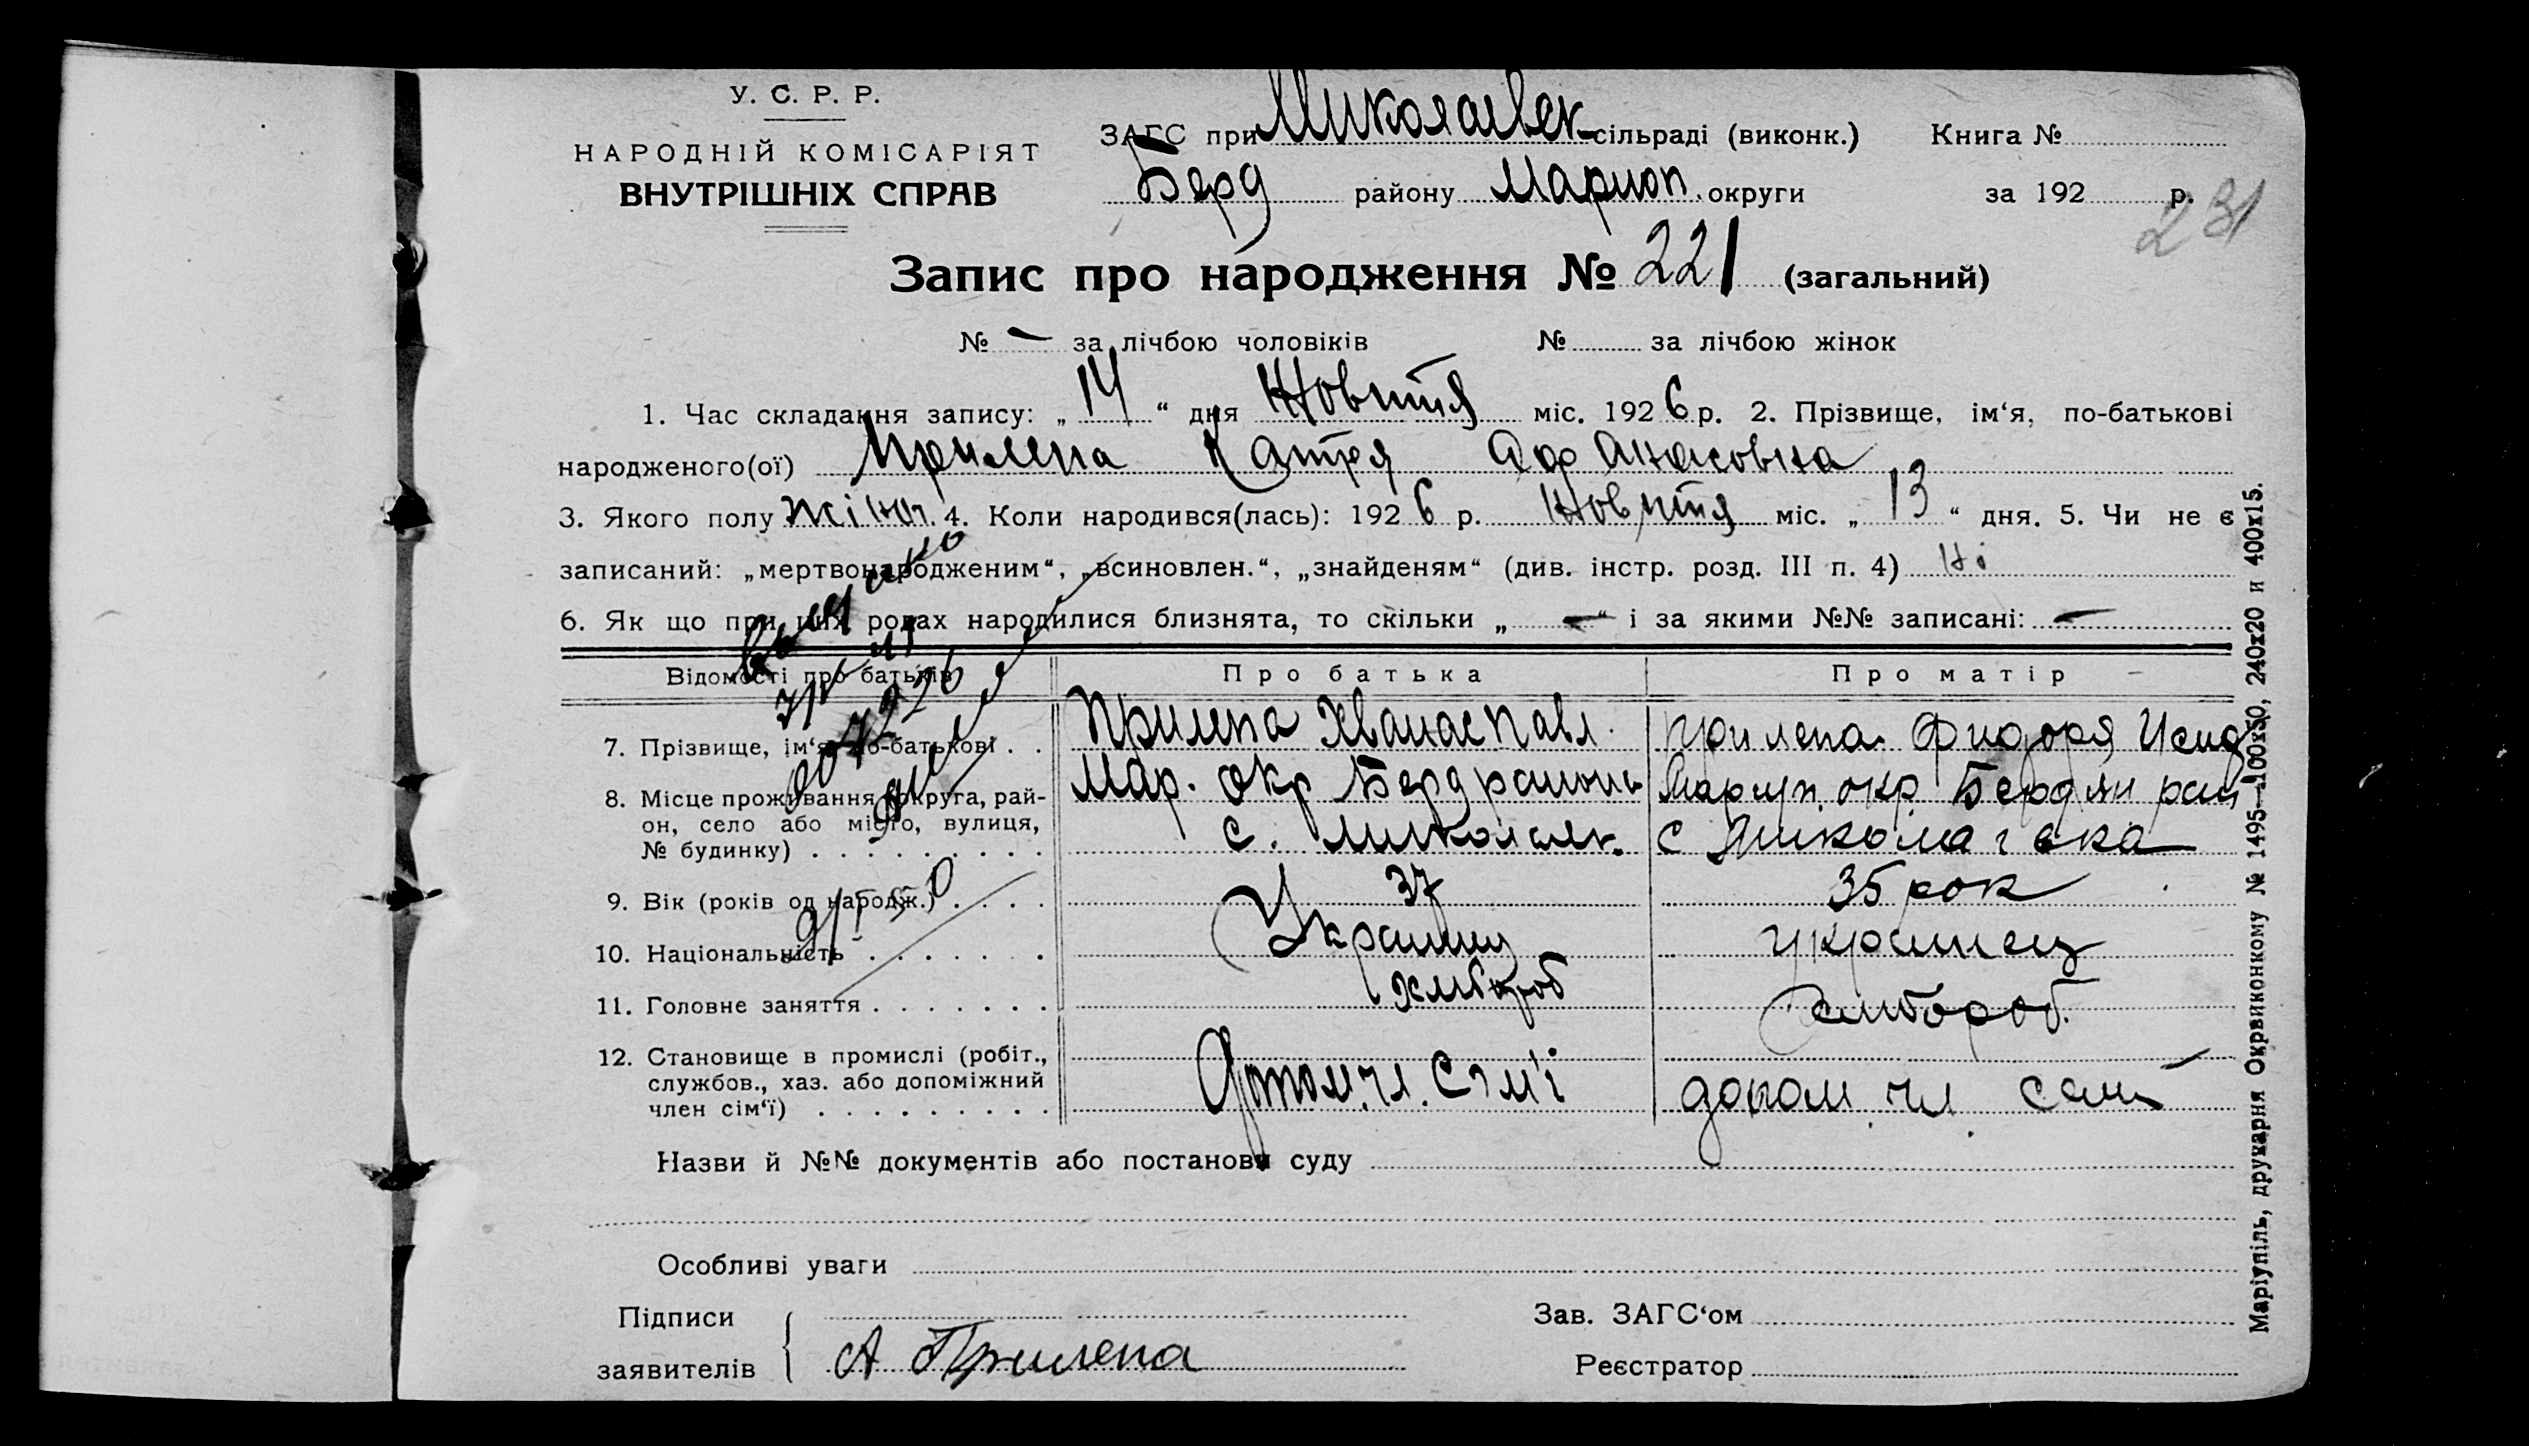 У. С. Р. Р.
НАРОДНІЙ КОМІСАРІЯТ
ВНУТРІШНІХ СПРАВ
ЗАГС при Миколаівск сільраді (виконк.) Книга №
Берд району Мариоп. округи за 192 р.
231
Запис про народження № 221 (загальний)
№ — за лічбою чоловіків № за лічбою жінок
1. Час складання запису: „ 14 “ дня Жовтня міс. 192 6 р. 2. Прізвище, ім‘я, по-батькові
народженого(ої) Прилепа Катря
3. Якого полу жіноч. 4. Коли народився(лась): 192 6 р. Жовтня міс. „ 13 “ дня. 5. Чи не є
записаний: „мертвонародженим“, „всиновлен.“, „знайденям“ (див. інстр. розд. III п. 4) Ні
6. Як що при цих родах народилися близнята, то скільки „ — “ і за якими №№ записані: —
Відомості про батьків Про батька Про матір
7. Прізвище, ім‘я, по-батькові . . Прилепа Хванас Павл. Прилепа Фидоря Исид
8. Місце проживання (округа, рай- Мар. окр Берд району Мариуп. окр Бердян рай
он, село або місто, вулиця, с. Миколаівк. с Миколаівка
№ будинку) . . . . . . . . .
9. Вік (років од народж.) . . . . 37 35 рок
10. Національність . . . . . . . Украинец украинец
11. Головне заняття . . . . . . . хлібороб хлібороб.
12. Становище в промислі (робіт.,
службов., хаз. або допоміжний чл. сім'ї допом чл сем
член сім‘ї) . . . . . . . . . .
Назви й №№ документів або постанови суду
Особливі уваги
Підписи Зав. ЗАГС‘ом
заявителів А Прилепа Реєстратор
Маріупіль, друкарня Окрвиконкому № 1495—100х50, 240х20 и 400х15.